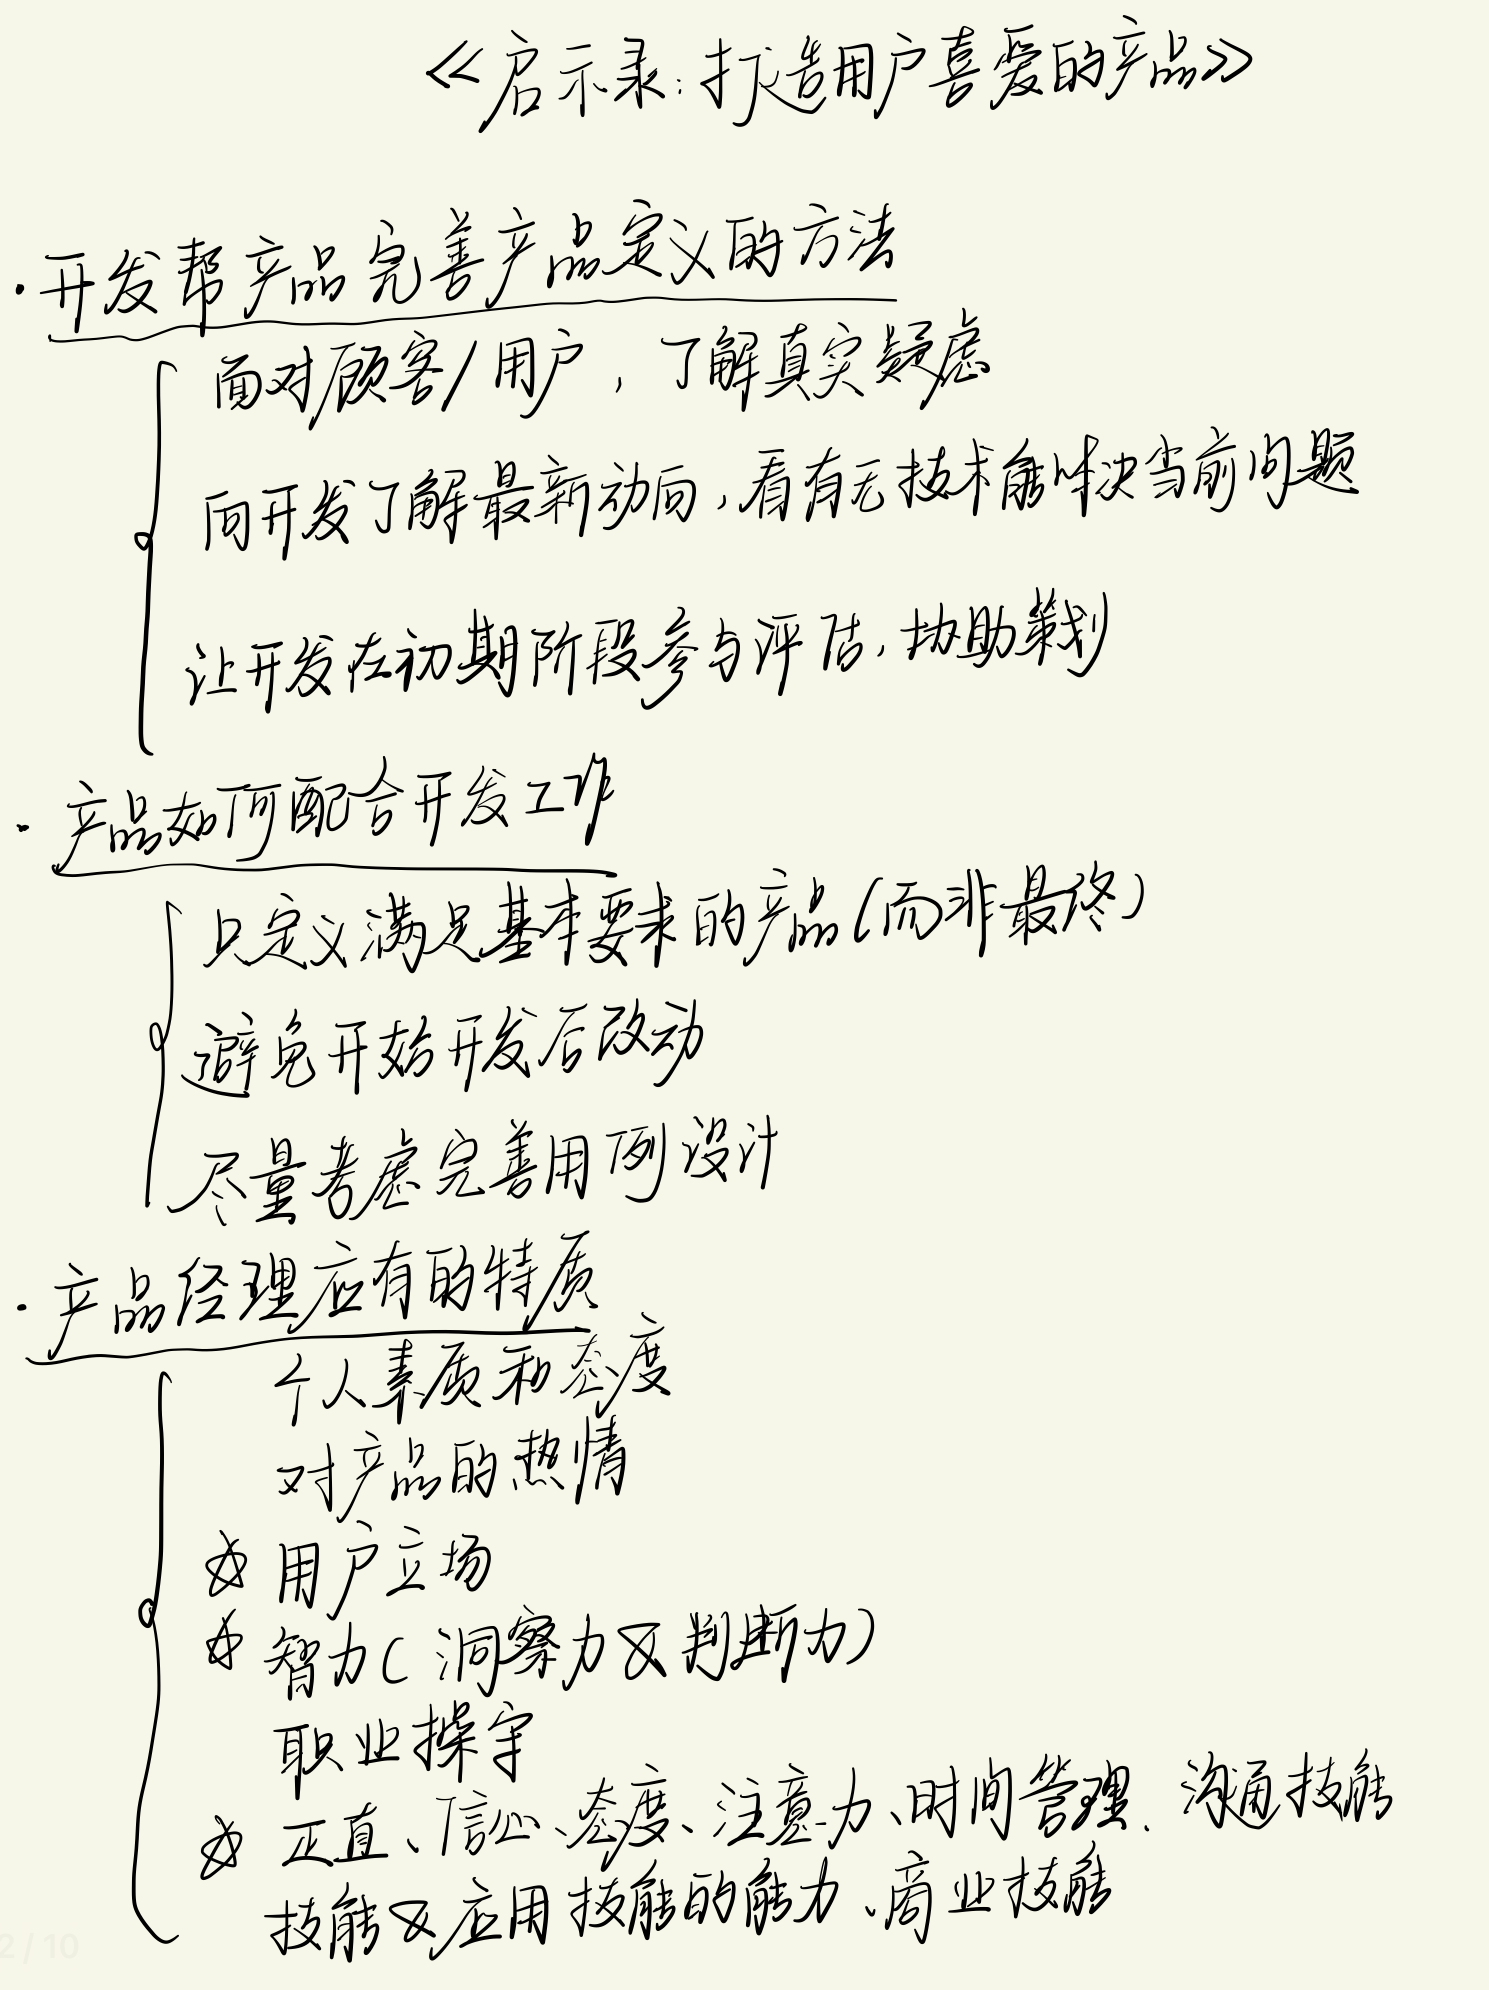 《启示录:打造用户喜爱的产品》
·开发帮产品完善产品定义的方法
面对顾客/用户,了解真实疑虑
向开发了解最新动向,看有无技术能解决当前问题
让开发在初期阶段参与评估,协助策划
·产品如何配合开发工作
只定义满足基本要求的产品(而非最终)
避免开始开发后改动
尽量考虑完善用例设计
·产品经理应有的特质
个人素质和态度
对产品的热情
☆用户立场
☆智力(洞察力&判断力)
职业操守
☆正直、信心、态度、注意力、时间管理、沟通技能
技能&应用技能的能力、商业技能
2/10